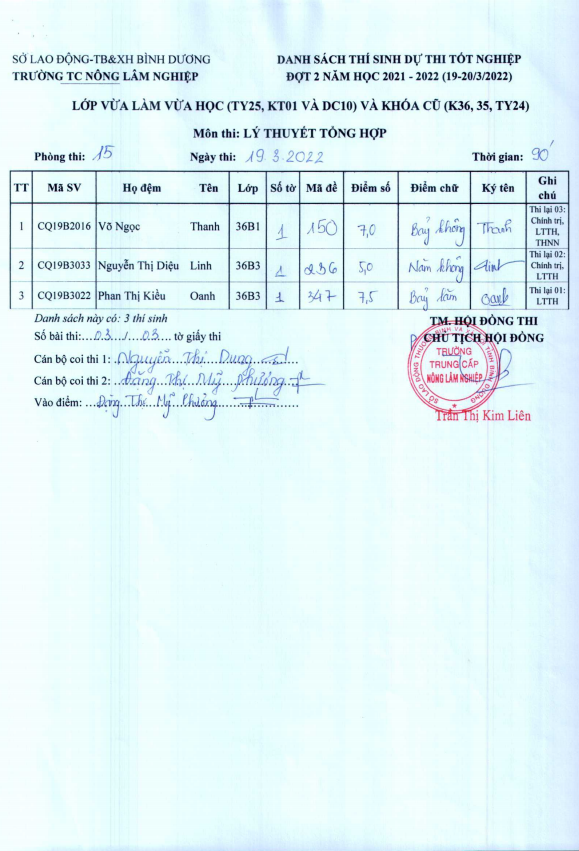 SỞ LAO ĐỘNG-TB&XH BÌNH DƯƠNG
TRƯỜNG TC NÔNG LÂM NGHIỆP
DANH SÁCH THÍ SINH DỰ THI TỐT NGHIỆP
ĐỢT 2 NĂM HỌC 2021 - 2022 (19-20/3/2022)
LỚP VỪA LÀM VỪA HỌC (TY25, KT01 VÀ DC10) VÀ KHÓA CŨ (K36, 35, TY24)
Môn thi: LÝ THUYẾT TỔNG HỢP
Phòng thi: 15 Ngày thi: 19.3.2022 Thời gian: 90'
TT Mã SV Họ đệm Tên Lớp Số tờ Mã đề Điểm số Điểm chữ Ký tên Ghi chú
1 CQ19B2016 Võ Ngọc Thanh 36B1 1 150 7,0 Bảy không Thanh Thi lại 03: Chính trị, LTTH, THNN
2 CQ19B3033 Nguyễn Thị Diệu Linh 36B3 1 236 5,0 Năm không Linh Thi lại 02: Chính trị, LTTH
3 CQ19B3022 Phan Thị Kiều Oanh 36B3 1 347 7,5 Bảy lăm Oanh Thi lại 01: LTTH
Danh sách này có: 3 thí sinh
Số bài thi:...03.../...03... tờ giấy thi
Cán bộ coi thi 1: Nguyễn Thị Dung
Cán bộ coi thi 2: Đặng Thị Mỹ Phượng
Vào điểm: Đặng Thị Mỹ Phượng
TM. HỘI ĐỒNG THI
CHỦ TỊCH HỘI ĐỒNG
TRƯỜNG
TRUNG CẤP
NÔNG LÂM NGHIỆP
Trần Thị Kim Liên